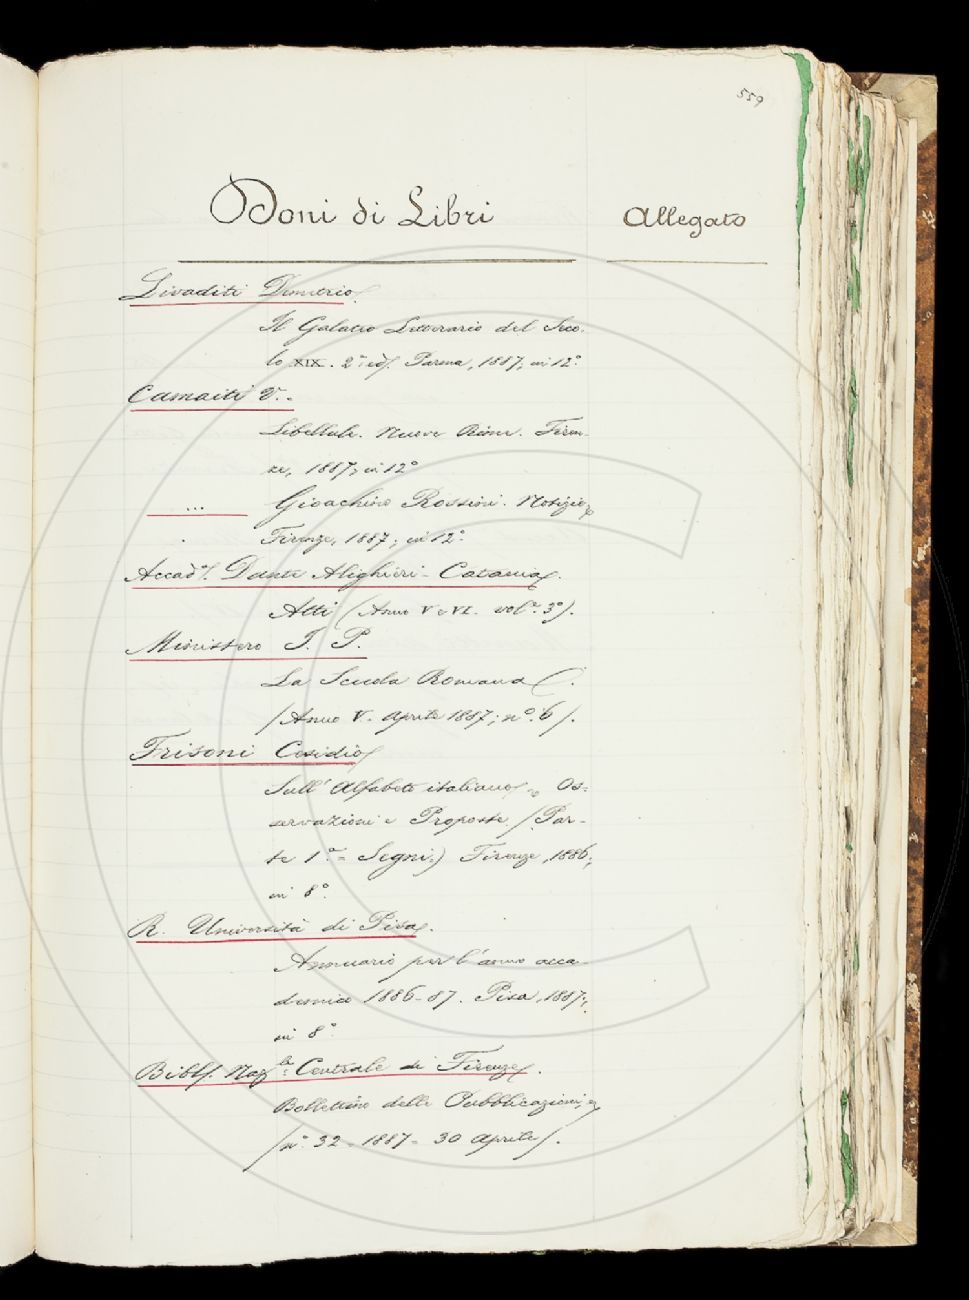 559
Doni di Libri Allegato
Livaditi Demetrio.
Il Galateo Letterario del Seco-
lo XIX. 2ª ed. Parma, 1887, in 12°
Camaiti V. -
Libellule. Nuove Rime. Firen-
ze, 1887; in 12°
... Gioachino Rossini. Notizie
Firenze, 1887; in 12°
Accad. Dante Alighieri - Catania.
Atti (Anno V e VI. vol. 3°).
Ministero I. P.
La Scuola Romana.
(Anno V. Aprile 1887; n° 6).
Frisoni Cesidio
Sull' Alfabeto italiano Os-
servazioni e Proposte. (Par-
te 1ª = Segni.) Firenze, 1886,
in 8°.
R. Università di Pisa.
Annuario per l'anno acca-
demico 1886-87. Pisa, 1887;
in 8°
Bibl. Naz.le Centrale di Firenze.
Bollettino delle Pubblicazioni,
(n. 32 - 1887 - 30 Aprile).